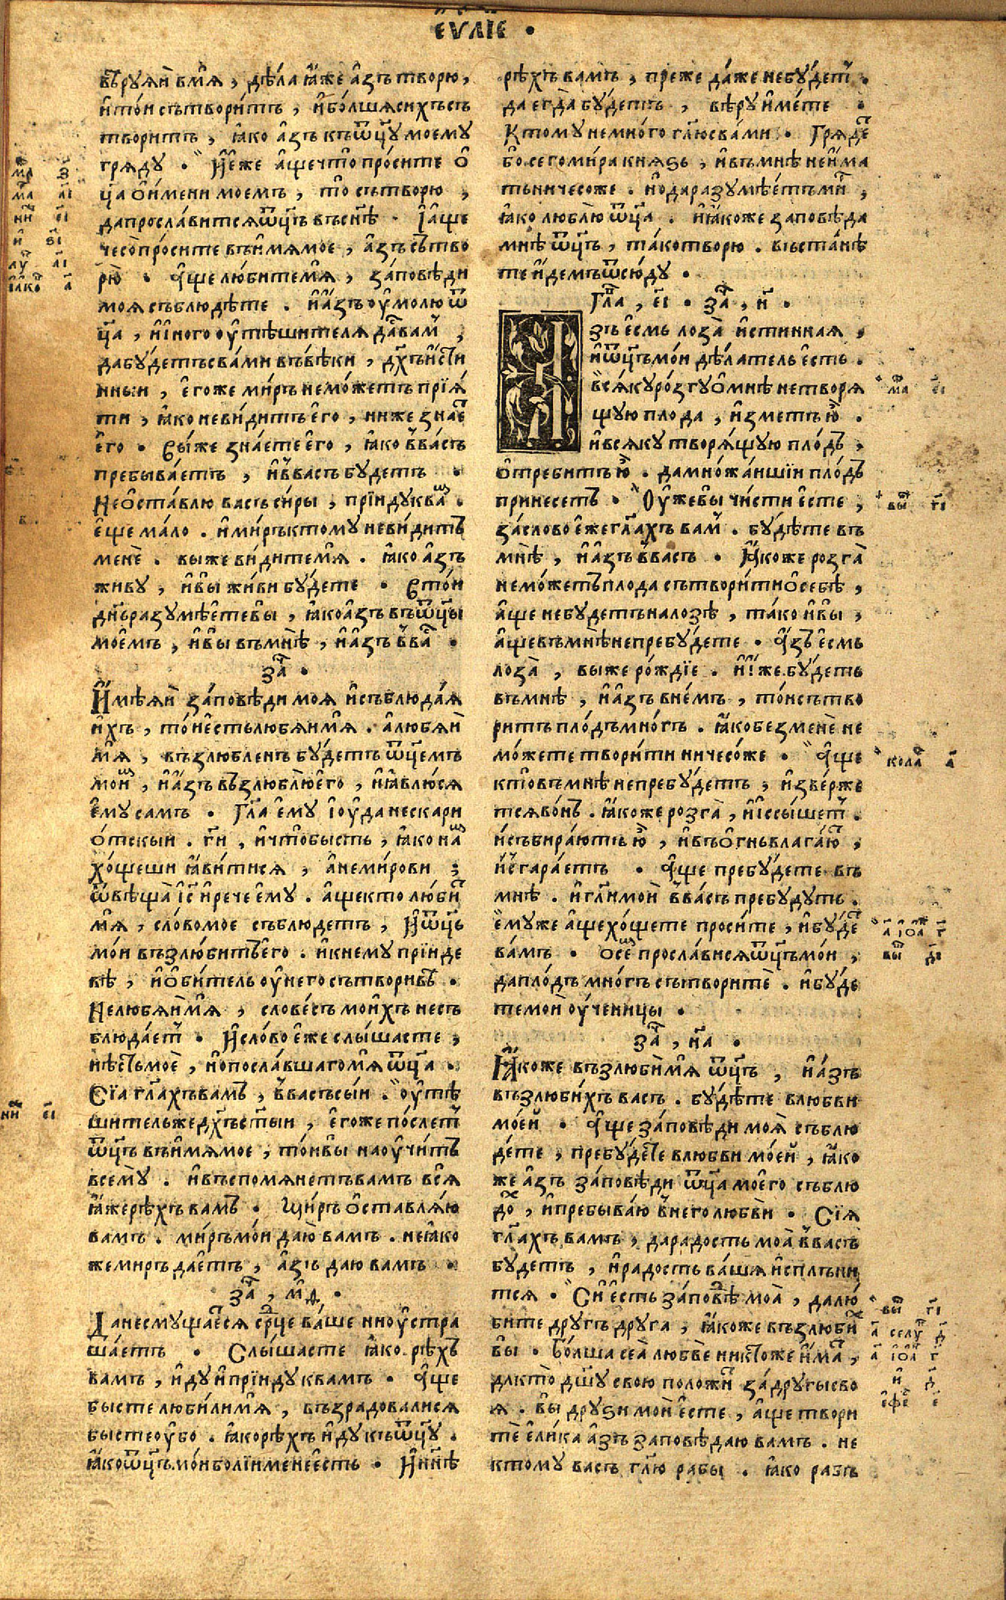 ЕѴЛІЕ .
вѣруяй вмя, дѣла яже азъ творю,
итои сътворитъ, иболшая сихъ съ
творитъ, яко азъ къ ѿцу моему
гряду . Иеже аще что просите о
ца оимени моемъ, то сътворю,
да прославится ѿцъ въ снѣ . Іаще
чесо просите въ имя мое, азъ сътво
рю . Аще любите мя, заповѣди
моя съблюдѣте . и азъ умолю ѿ
ца, и иного утѣшителя дастъ вам,
да будетъ с вами въ вѣки, дхъ исти
нныи, его же миръ не можетъ прія
ти, яко не видитъ его, ниже знае
его . Вы же знаете его, яко ввасъ
пребываетъ, и ввасъ будетъ .
Не оставлю васъ сиры, пріиду к ва .
еще мало . и миръ ктому не видитъ
мене . вы же видите мя . яко азъ
живу, и вы живи будете . В тои
днь разумѣете вы, яко азъ въ ѿцы
моемъ, и вы въ мнѣ, и азъ в ва .
за .
Имѣяй заповѣди моя и съблюдая
ихъ, тои есть любяи мя . а любяй
мя, възлюбленъ будетъ ѿцемъ
мои, и азъ възлюблю его, и явлюся
ему самъ . Гла ему Іоуда не искари
отскыи . ги, и что бысть, яко на
хощеши явитися, а не мирови ;
ѿвѣща іс и рече ему . аще кто люби
мя, слово мое съблюдетъ, и ѿць
мои възлюбитъ его . и к нему пріиде
вѣ, и обитель у него сътворивѣ .
Не любяи мя, словесъ моихъ не съ
блюдает . И слово еже слышасте,
нѣсть мое, но пославшаго мя ѿца .
Сіа глахъ вамъ, ввасъ сыи . утѣ
шитель же дхъ стыи, его же послет
ѿцъ въ имя мое, тои вы научитъ
всему . и въспомянетъ вамъ вся
яже рѣхъ вамъ . Миръ оставляю
вамъ . миръ мои даю вамъ . не яко
же миръ даетъ, азъ даю вамъ .
за, мд .
Да не смущается срдце ваше ни устра
шаетъ . Слышасте яко рѣхъ
вамъ, иду и пріиду к вамъ . Аще
бысте любили мя, възрадовалися
бысте убо . яко рѣхъ иду къ ѿцу .
яко ѿцъ мои болии мене есть . И ннѣ
рѣхъ вамъ, преже даже не будет .
да егда будетъ, вѣру имете .
Ктому не много глю с вами . Гряде
бо сего мира князь, и въ мнѣ не има
ть ничесоже . но да разумѣетъ ми,
яко люблю ѿца . и якоже заповѣда
мнѣ ѿцъ, тако творю . въстанѣ
те идемъ ѿсюду .
Гла, еі . за, н .
Азъ есмь лоза истинная,
и ѿцъ мои дѣлатель есть .
Всяку розгу о мнѣ не творя
щую плода, изметъ ю .
и всяку творящую плодъ,
отребитъ ю . да множаишіи плодъ
принесетъ . Уже вы чисти есте,
за слово еже глахъ вам . будѣте въ
мнѣ, и азъ ввасъ . Якоже розга
не можетъ плода сътворити о себѣ,
аще не будетъ на лозѣ, тако и вы,
аще въ мнѣ не пребудете . Азъ есмь
лоза, вы же рождіе . Иже будетъ
въ мнѣ, и азъ в немъ, тои сътво
ритъ плодъ многъ . яко без мене не
можете творити ничесоже . Аще
кто въ мнѣ не пребудетъ, извержe
тся вонъ . якоже розга, и іссышет .
и събираютъ ю, и въ огнь влагаю,
и сгараетъ . Аще пребудете въ
мнѣ . и гли мои ввасъ пребудутъ .
ему же аще хощете просите, и буде
вамъ . О семъ прославися ѿцъ мои,
да плодъ многъ сътворите . и буде
те мои ученицы .
за, на .
Якоже възлюби мя ѿцъ, и азъ
възлюбихъ васъ . будѣте в любви
моей . Аще заповѣди моя съблю
дете, пребудете в любви моей, яко
же азъ заповѣди ѿца моего съблю
дох, и пребываю в него любви . Сія
глахъ вамъ, да радость моя ввасъ
будетъ, и радость ваша исплъни
тся . Си есть заповѣ моа, да лю
бите другъ друга, якоже възлюби
вы . Болша сеа любве никтоже има,
да кто дшу свою положи за другы сво
я . вы друзи мои есте, аще твори
те елика азъ заповѣдаю вамъ . не
ктому васъ глю рабы . яко разъ